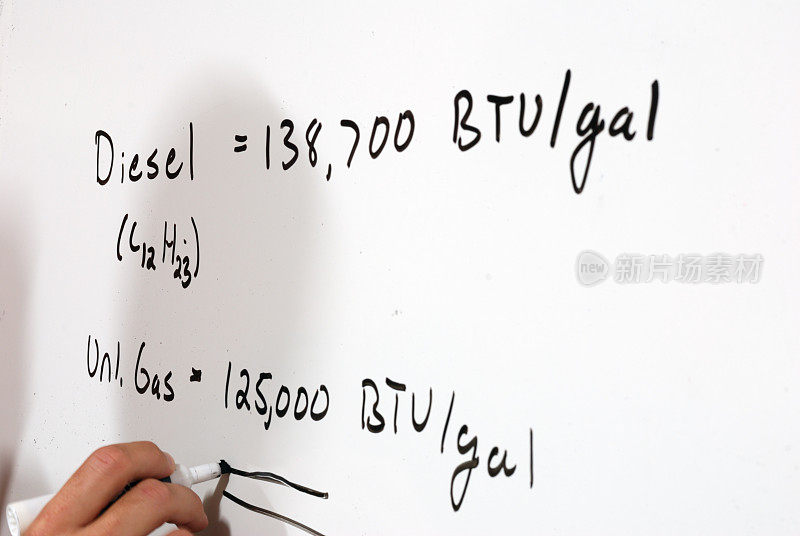 Diesel = 138,700 BTU/gal
(C12H23)
Unl. Gas = 125,000 BTU/gal
new 新片场素材